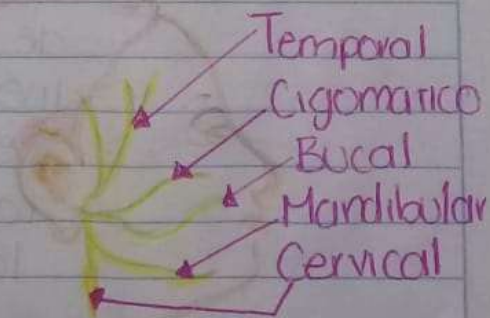 Temporal
Cigomatico
Bucal
Mandibular
Cervical